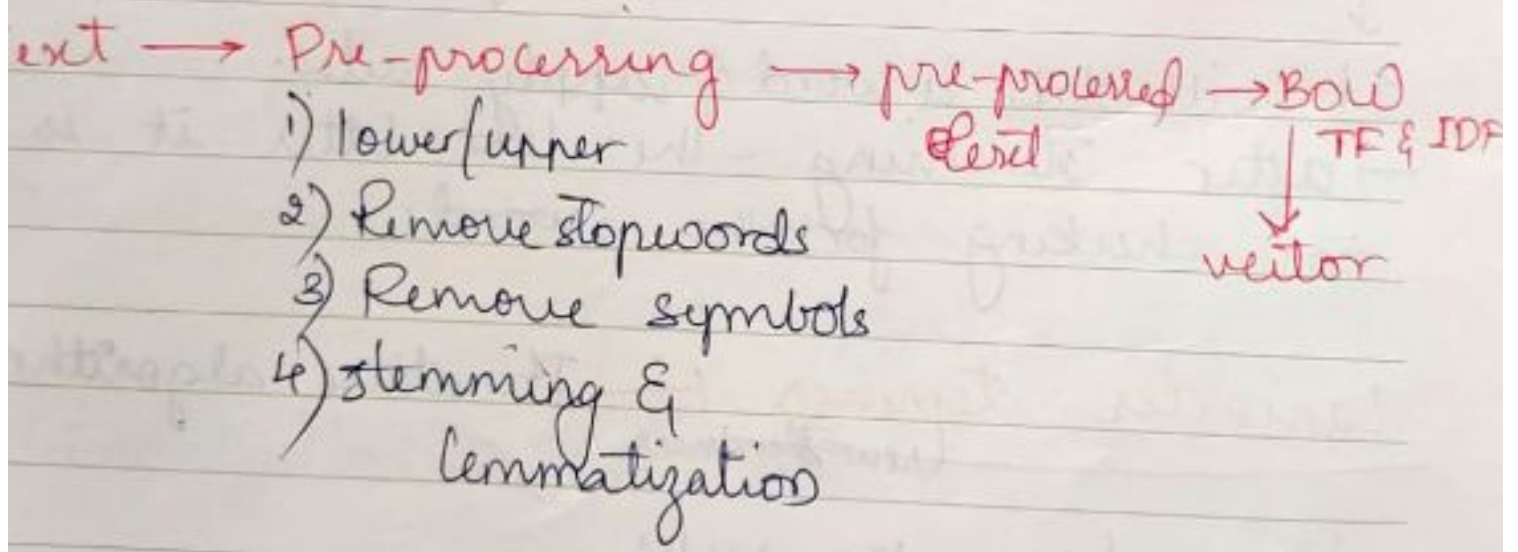 ext → Pre-processing → pre-processed → BOW
text TF & IDF
1) lower/upper
2) Remove stopwords
vector
3) Remove symbols
4) stemming &
lemmatization